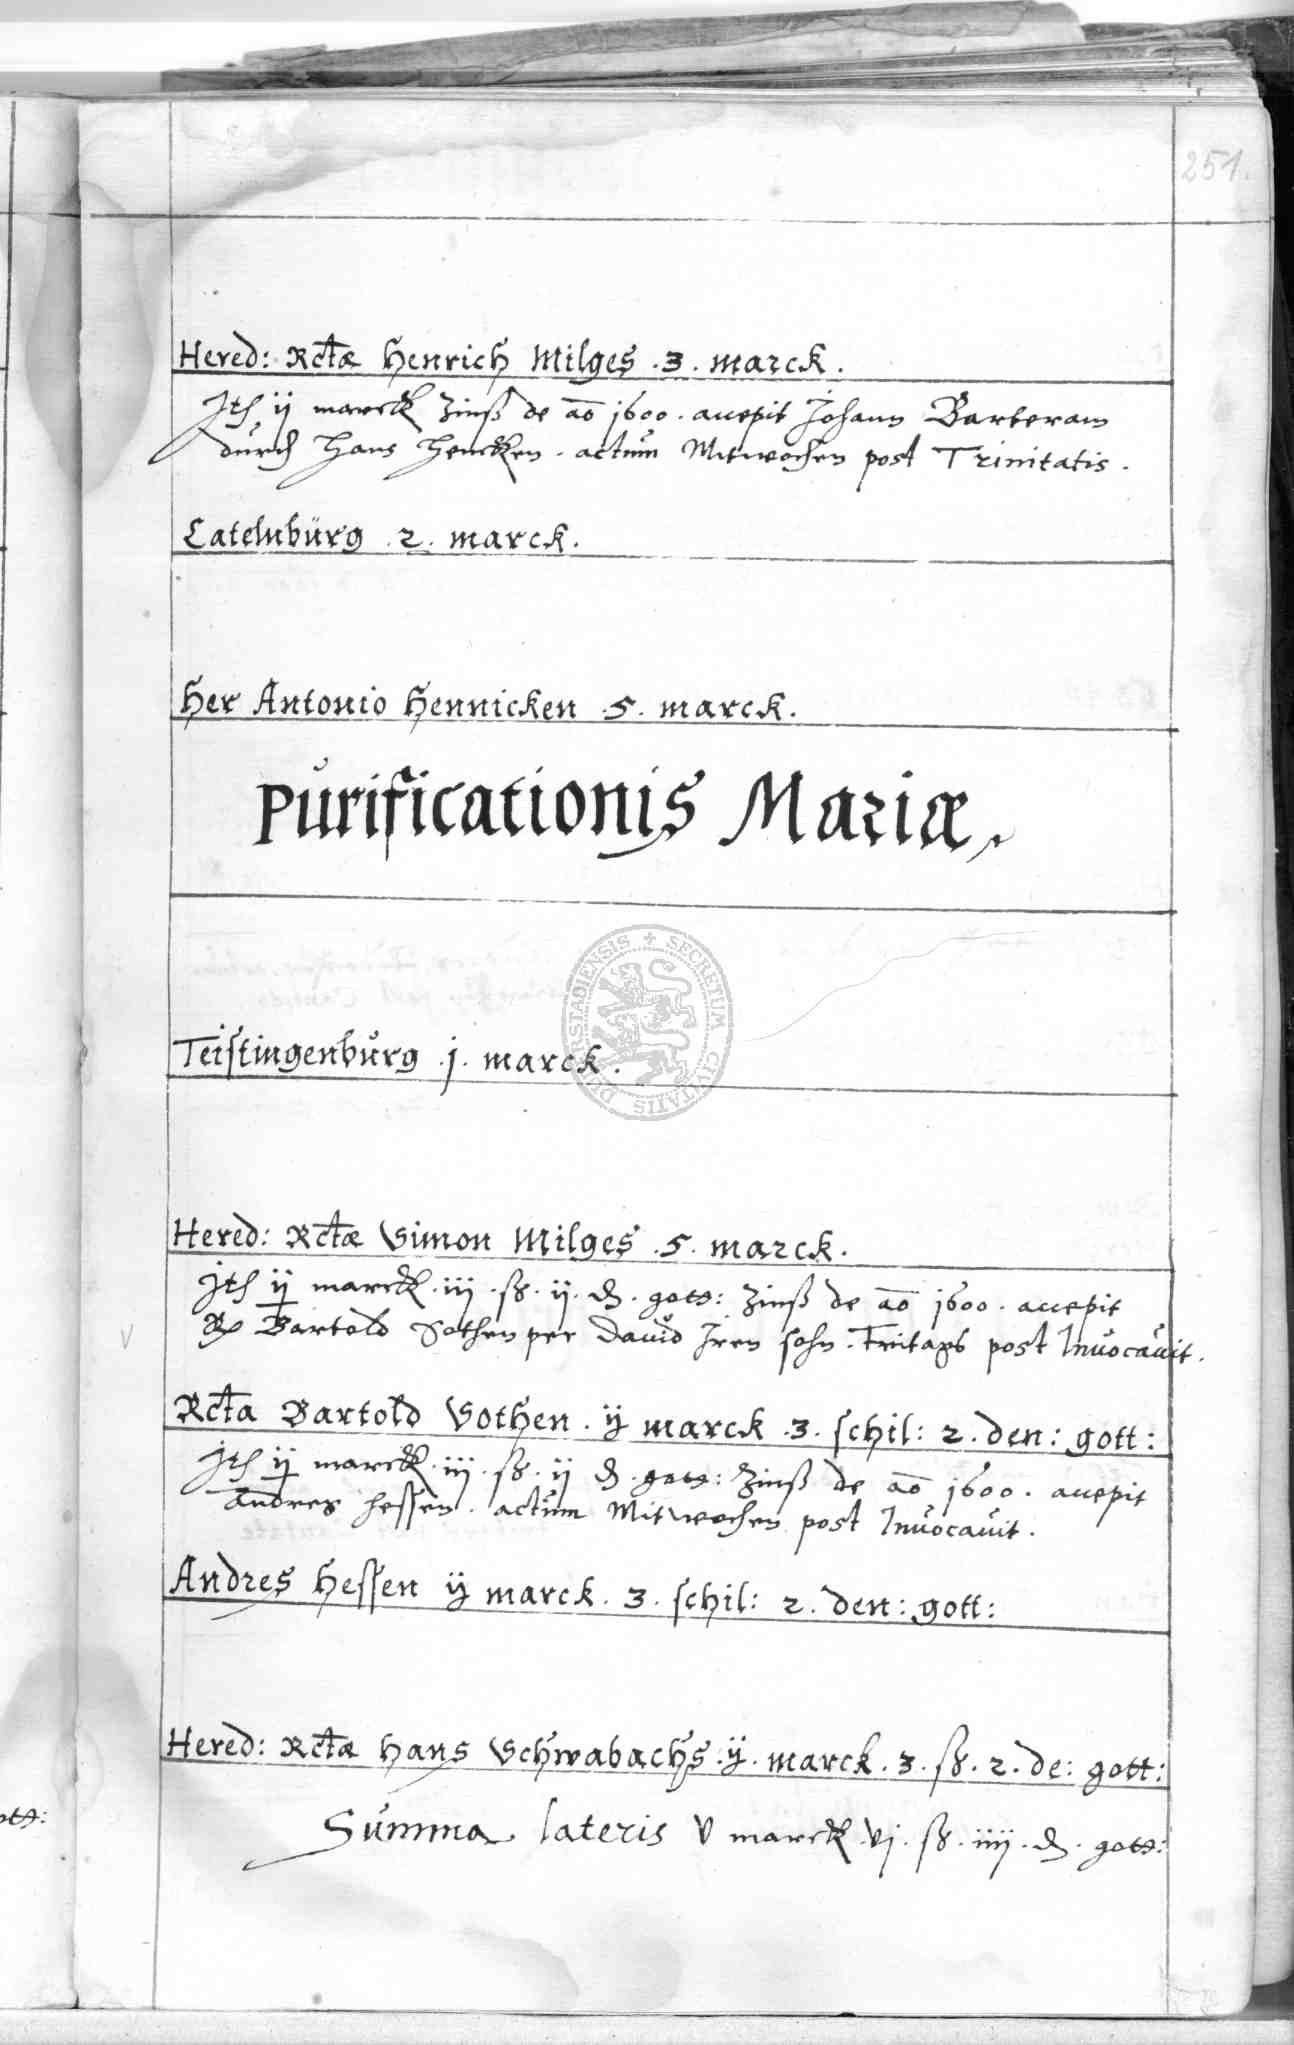 251.
Hered: Rctæ Henrich Milges .3. marck.
Jtē ij marck Zinß de ao 1600. accepit Johann Barteram
durch Hans Hencken. actum Mitwochen post Trinitatis.
Catelnbürg .2. marck.
Her Antonio Hennicken .5. marck.
Purificationis Mariæ.
Teistingenburg .j. marck.
Hered: Rctæ Simon Milges .5. marck.
Jtē ij marck .iij. ß. ij. d. gott: Zinß de ao 1600. accepit
Bartold Sothen per David Jren sohn. Freitags post Invocavit.
Rcta Bartold Sothen . ij marck .3. schil: 2. den: gott:
Jtē ij marck .iij. ß. ij d. gott: Zinß de ao 1600. accepit
Andres Hessen. actum Mitwochen post Invocavit.
Andres Hessen ij marck. 3. schil: 2. den: gott:
Hered: Rctæ Hans Schwabachs .ij. marck .3. ß. 2. de: gott:
Summa lateris V marck .vj. ß. iiij. d. gott:
SECRETUM CIVITATIS DUDERSTADIENSIS